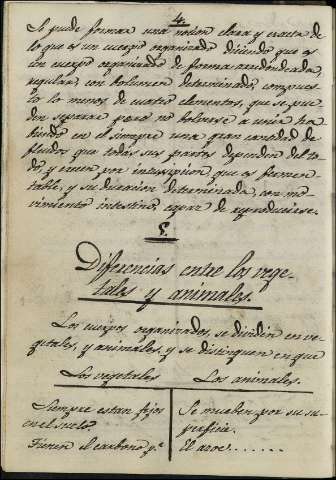 4.
Se puede formar una nocion clara y exacta de
lo que es un cuerpo organizado diciendo que es
un cuerpo organizado de forma arredondeada,
regular, con bolumen determinado, compues-
to lo menos de cuatro elementos, que se pue-
den separar pero no bolverse a unir ha
biendo en el siempre una gran cantidad de
fluidos que todas sus partes dependen del to-
do, y crecen por intususpcion, que es fermen-
table, y su duracion determinada, con mo-
vimiento intestino capaz de reproducirse.
5.
Diferencias entre los vege-
tales y animales.
Los cuerpos organizados, se dividen en ve-
getales, y animales, y se distinguen en que
Los vegetales Los animales.
Siempre estan fijos Se mueben por su su-
en el suelo. perficie.
Tienen el carbono p.ª El azoe......